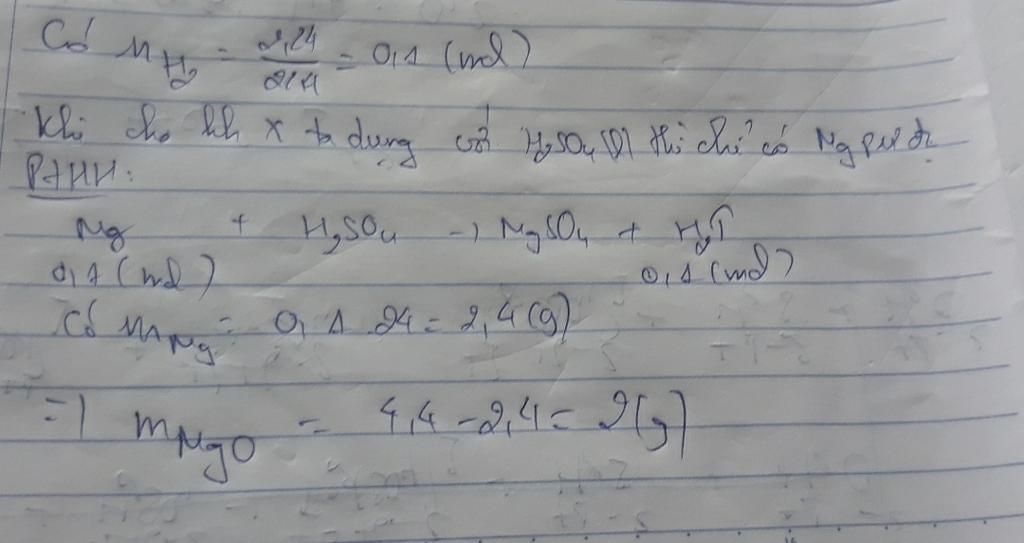 Có n H₂ = 2,24 / 22,4 = 0,1 (mol)
Khi cho hh X td dụng với H₂SO₄ (l) thì chỉ có Mg pư dc
PTHH:
Mg + H₂SO₄ → MgSO₄ + H₂↑
0,1 (mol) 0,1 (mol)
Có m Mg = 0,1 . 24 = 2,4 (g)
=> m MgO = 4,4 - 2,4 = 2 (g)